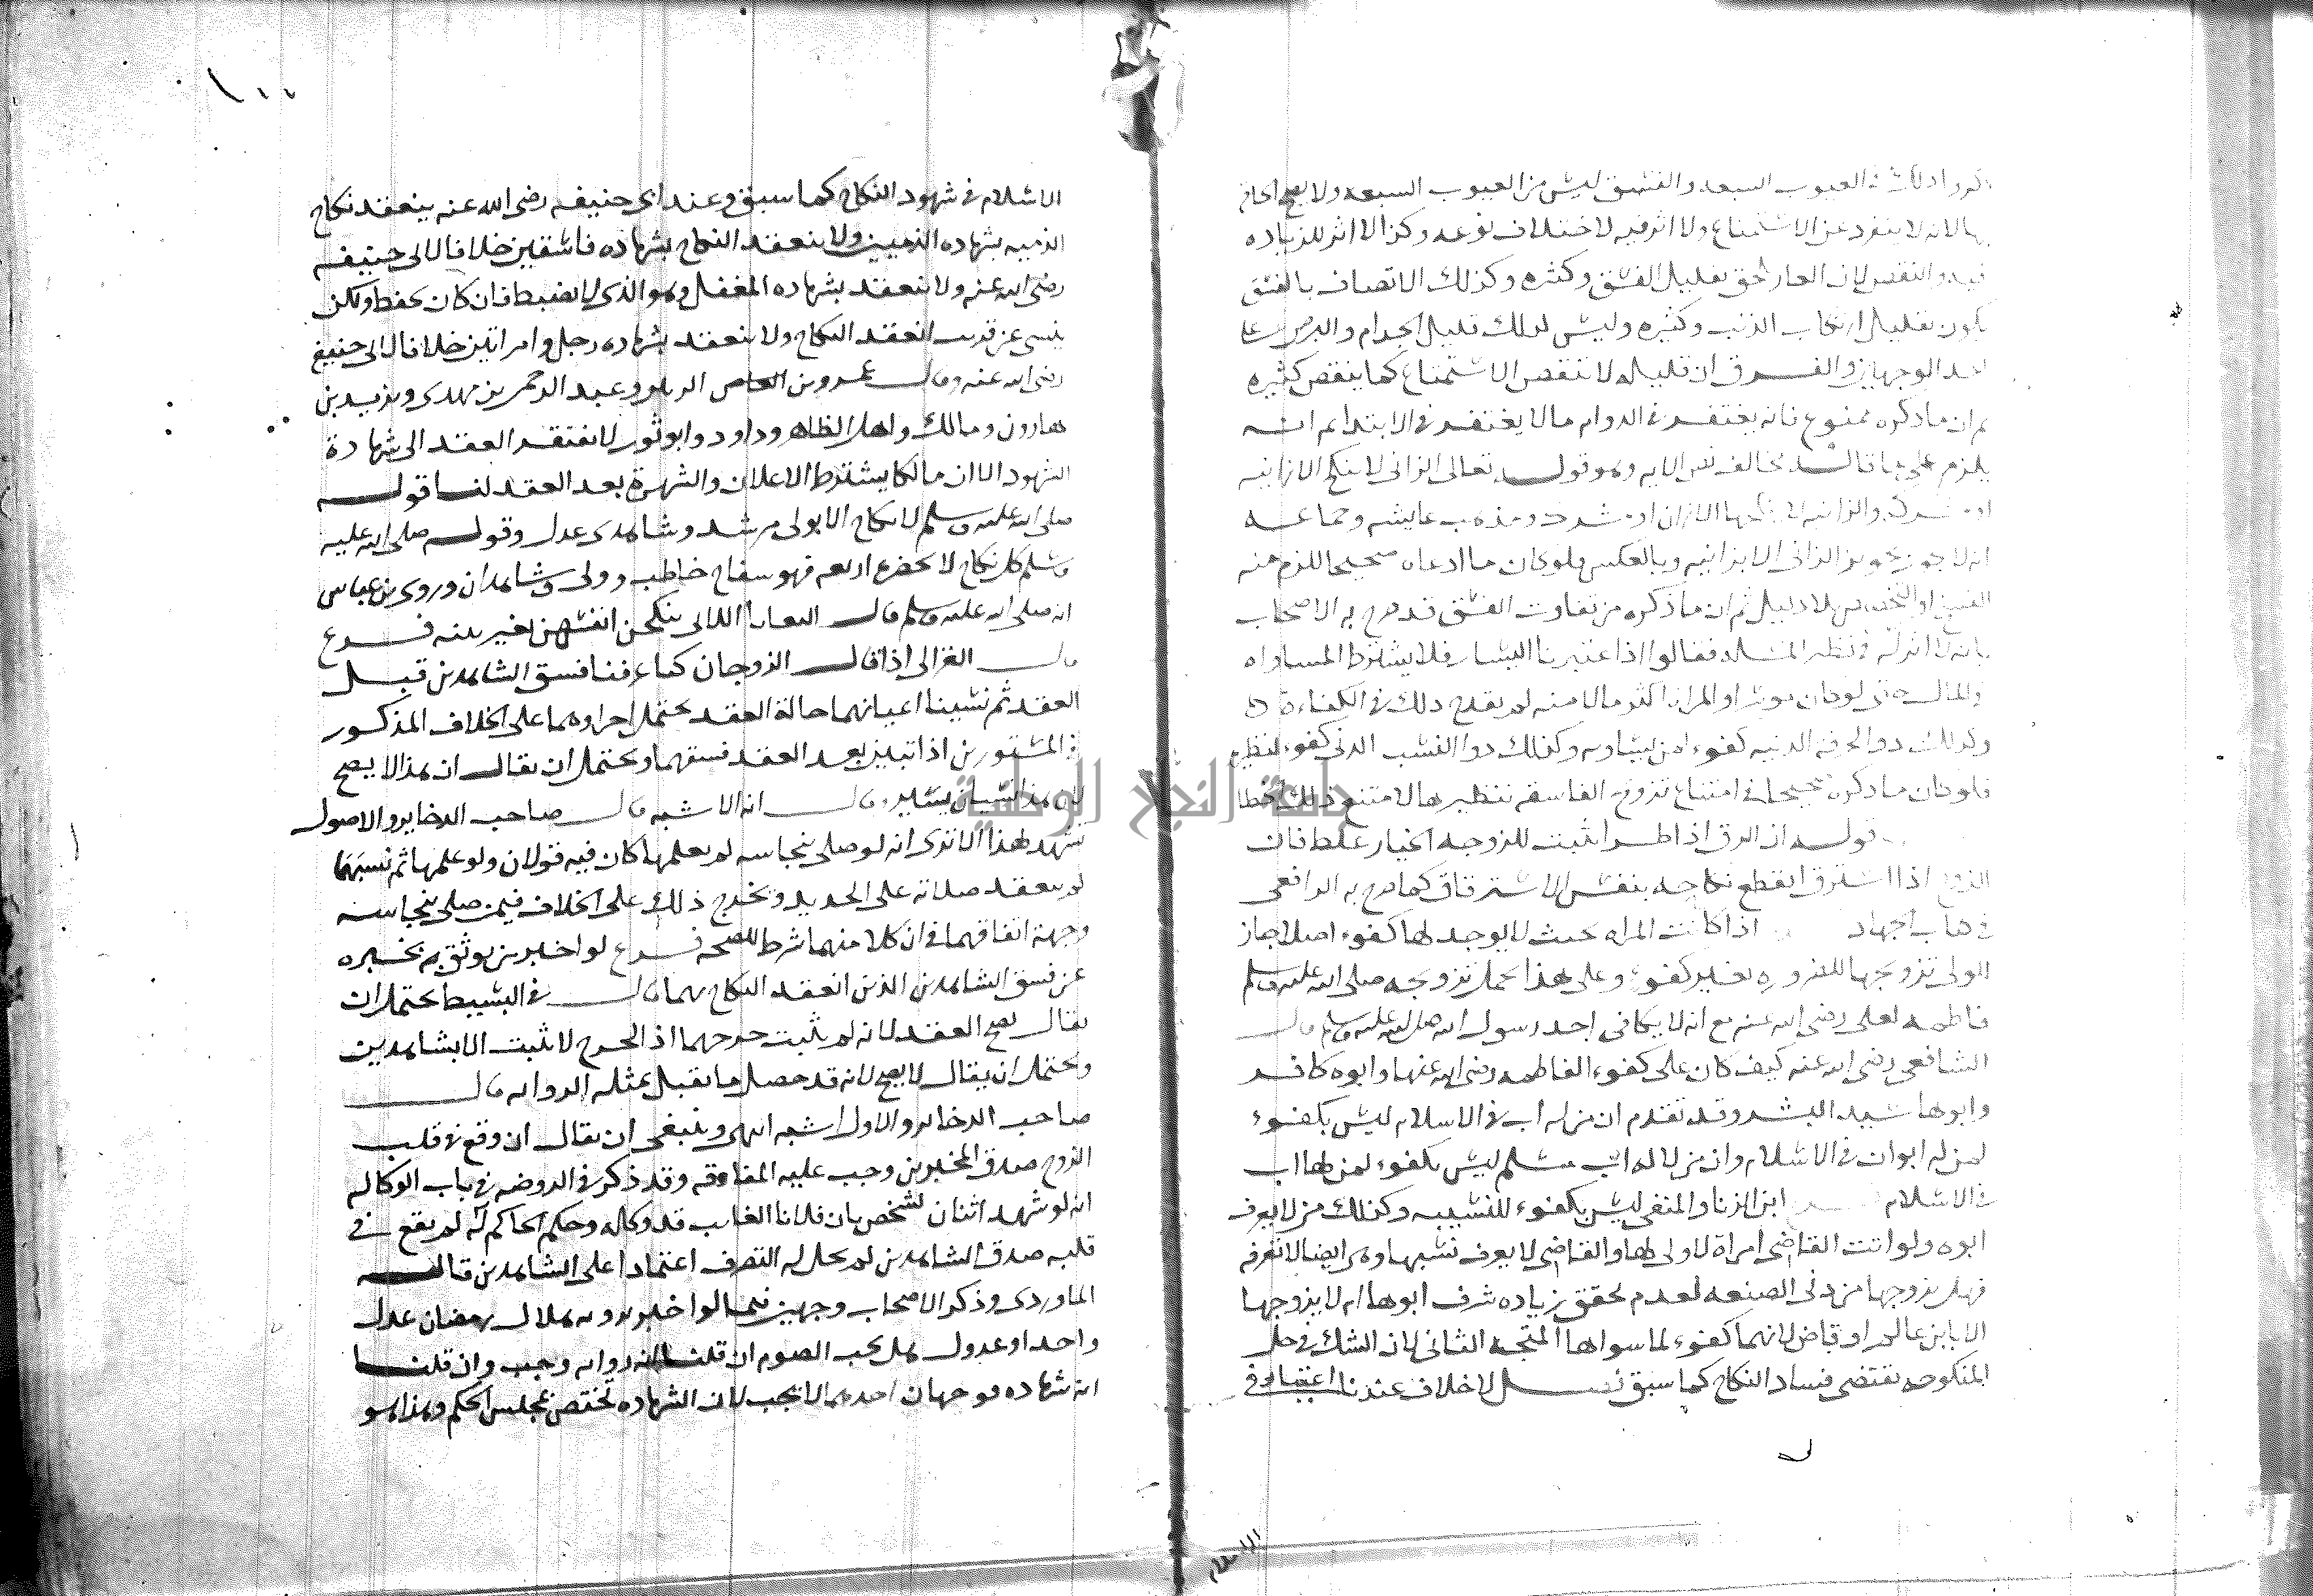 ذلك في العيوب السبعه والفسق ليس من العيوب السبعه ولا يصح الحاقه
بها لانه لا ينفرد عن الاستمتاع ولا اثر فيه لاختلاف نوعه وكذا لا اثر للزياده
فيه والنقص لان العار لحق بقليل الفسق وكثره وكذلك الاتصاف بالفسق
يكون بقليل ارتكاب الذنب وكثيره وليس كذلك قليل الجدام والبرص على
احد الوجهين والفرق ان قليله لا تنقص الاستمتاع كما ينقص كثيره
ثم ان ما ذكره ممنوع فانه يغتفر في الدوام ما لا يغتفر في الابتدا ثم انه
يلزم على ما قاله مخالف نص الايه وهو قوله تعالى الزاني لا ينكح الا زانيه
او مشركه والزانيه لا ينكحها الا زان او مشرك ومذهب عايشه وجماعه
انه لا يجوز تجويز الزاني الا بزانيه وبالعكس ولو كان ما ادعاه صحيحا للزم منه
بلا دليل ثم ان ما ذكره من تفاوت الفسق قد صرح به الاصحاب
بانه لا اثر له في نظير المسله فقالوا اذا اعتبرنا اليسار فلا يشترط المساواه
والمال حتى لو كان موسرا والمراه اكثر مالا منه لم يقدح ذلك في الكفاءة
وكذلك ذو الحرفه الدنيه كفوء لمن يساويه وكذلك ذوا النسب الدني كفوء لنظيره
فلو كان ما ذكره صحيحا في امتناع تزويج الفاسقه بنظيرها لامتنع ذلك
قوله ان الرق اذا طرا يثبت للزوجه الخيار غلط فان
الزوج اذا استرق انقطع نكاحه بنفس الاسترقاق كما صرح به الرافعي
في باب الجهاد اذا كانت المراه بحيث لا يوجد لها كفوء اصلا جاز
للولي تزويجها للضروره بغير كفوء وعلى هذا يحمل تزويجه صلى الله عليه وسلم
فاطمه لعلى رضي الله عنه مع انه لا يكافي احد رسول الله صلى الله عليه وسلم قال
الشافعي رضي الله عنه كيف كان علي كفوء الفاطمه رضي الله عنها وابوه كافر
وابوها سيد البشر وقد تقدم ان من له اب في الاسلام ليس بكفوء
لمن له ابوان في الاسلام وان من لا له اب مسلم ليس بكفوء لمن لها اب
في الاسلام ابن الزنا والمنفي ليس بكفوء للنسيبه وكذلك من لا يعرف
ابوه ولو اتت القاضي امراة لا ولي لها والقاضي لا يعرف نسبها وهي ايضا لا تعرفه
فهل يزوجها من دني الصنعه لعدم تحقق زياده شرف ابوها ام لا يزوجها
الا بابن عالم او قاض لانهما كفوء لما سواها المتجه الثاني لان الشك في حل
المنكوحه يقتضي فساد النكاح كما سبق فصل لا خلاف عندنا اعتبار في
الاسلام في شهود النكاح كما سبق وعند ابي حنيفه رضي الله عنه ينعقد نكاح
الذميه بشهاده الذميين ولا ينعقد النكاح بشهاده فاسقين خلافا لابي حنيفه
رضي الله عنه ولا ينعقد بشهاده المغفل وهو الذي لا يضبط فان كان يحفظ ولكن
ينسى عن قرب انعقد النكاح ولا ينعقد بشهاده رجل وامراتين خلافا لابي حنيفه
رضي الله عنه وقال عمرو بن العاص وعبد الرحمن بن مهدي ويزيد بن
هارون ومالك واهل الظاهر وداود وابو ثور لا يفتقر العقد الى شهادة
الشهود الا ان مالكا يشترط الاعلان والشهرة بعد العقد لنا قوله
صلى الله عليه وسلم لا نكاح الا بولي مرشد وشاهدي عدل وقوله صلى الله عليه
وسلم كل نكاح لا يحضره اربعه فهو سفاح خاطب وولي وشاهدان وروى بن عباس
انه صلى الله عليه وسلم قال البغايا اللاتي ينكحن انفسهن بغير بينه فرع
قال الغزالي اذا قال الزوجان كنا عرفنا فسق الشاهدين قبل
العقد ثم نسينا اعيانهما حالة العقد يحتمل اجراوهما على الخلاف المذكور
في المستورين اذا تبين بعد العقد فسقهما ويحتمل ان يقال ان هذا لا يصح
لان هذا نسيان يشاير وقال انه الاشبه قال صاحب الدخاير والاصول
تشهد لهذا الا ترى انه لو صلى بنجاسه لم يعلمها كان فيه قولان ولو علمها ثم نسيها
لم ينعقد صلاته على الجديد وتخرج ذلك على الخلاف فيمن صلى بنجاسه
وجهة اتفاقهما في ان كلا منهما شرط للصحه فرع لو اخبر من يوثق به بخبره
عن فسق الشاهدين الذين انعقد النكاح بهما قال في البسيط يحتمل ان
يقال يصح العقد لانه لم يثبت جرحهما اذ الجرح لا يثبت الا بشاهدين
ويحتمل ان يقال لا يصح لانه قد حصل ما يقبل بمثله الروايه قال
صاحب الدخاير والاول اشبه انتهى وينبغي ان يقال ان وقع في قلب
الزوج صدق المخبرين وجب عليه المفارقه وقد ذكر في الروضه في باب الوكاله
انه لو شهد اثنان لشخص بان فلانا الغايب قد وكله وحكم الحاكم له لم يقع في
قلبه صدق الشاهدين لم يحل له التصرف اعتمادا على الشاهدين قاله
الماوردي وذكر الاصحاب وجهين فيما لو اخبر برويه هلال رمضان عدل
واحد او عدول هل يجب الصوم ان قلنا انه روايه وجب وان قلنا
انه شهاده فوجهان احدهما لا تجب لان الشهاده تختص بمجلس الحكم وهذا هو
جامعة النجاح الوطنية